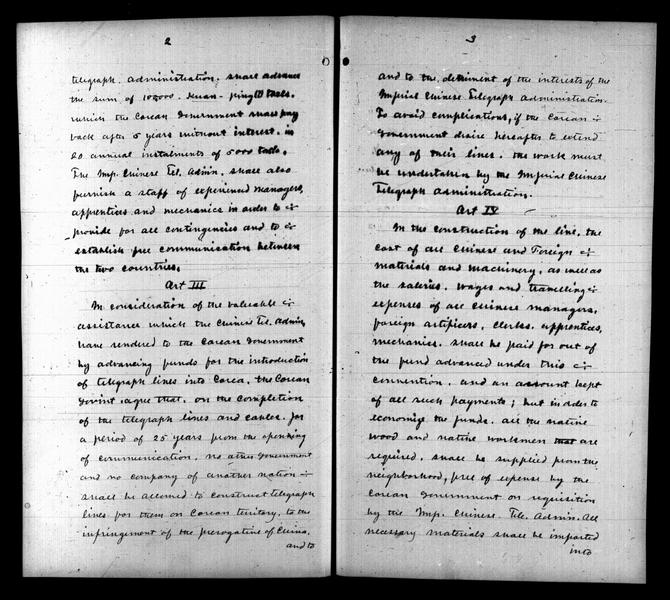 2
telegraph administration. shall advance
the sum of 100,000 Kuan-ping tls taels.
which the Corean Government shall pay
back after 5 years without interest. in
20 annual instalments of 5000 taels.
The Imp. Chinese Tel. Admn. shall also
furnish a staff of experienced managers,
apprentices and mechanics in order to
provide for all contingencies and to
establish free communication between
the two countries.
Art III
In consideration of the valuable
assistance which the Chinese Tel. Admn,
have rendered to the Corean Government
by advancing funds for the introduction
of telegraph lines into Corea, the Corean
Govint. agree that. on the completion
of the telegraph lines and cables. for
a period of 25 years from the opening
of communication. no other Government
and no company of another nation
shall be allowed to construct telegraph
lines for them on Corean territory, to the
infringement of the prerogative of China,
and to
3
and to the detriment of the interests of the
Imperial Chinese Telegraph administration.
To avoid complications, if the Corean
Government desire hereafter to extend
any of their lines. the work must
be undertaken by the Imperial Chinese
Telegraph administration.
Art IV
In the construction of the line, the
cost of all Chinese and Foreign
materials and machinery, as well as
the salaries. wages and travelling
expenses of all Chinese managers,
foreign artificers. clerks. apprentices,
mechanics. shall be paid for out of
the fund advanced under this
convention. and an account kept
of all such payments; but in order to
economise the funds. all the native
wood and native workmen that are
required. shall be supplied from the
neighborhood, free of expense by the
Corean Government on requisition
by the Imp. Chinese. Tel. Admn. All
necessary materials shall be imported
into